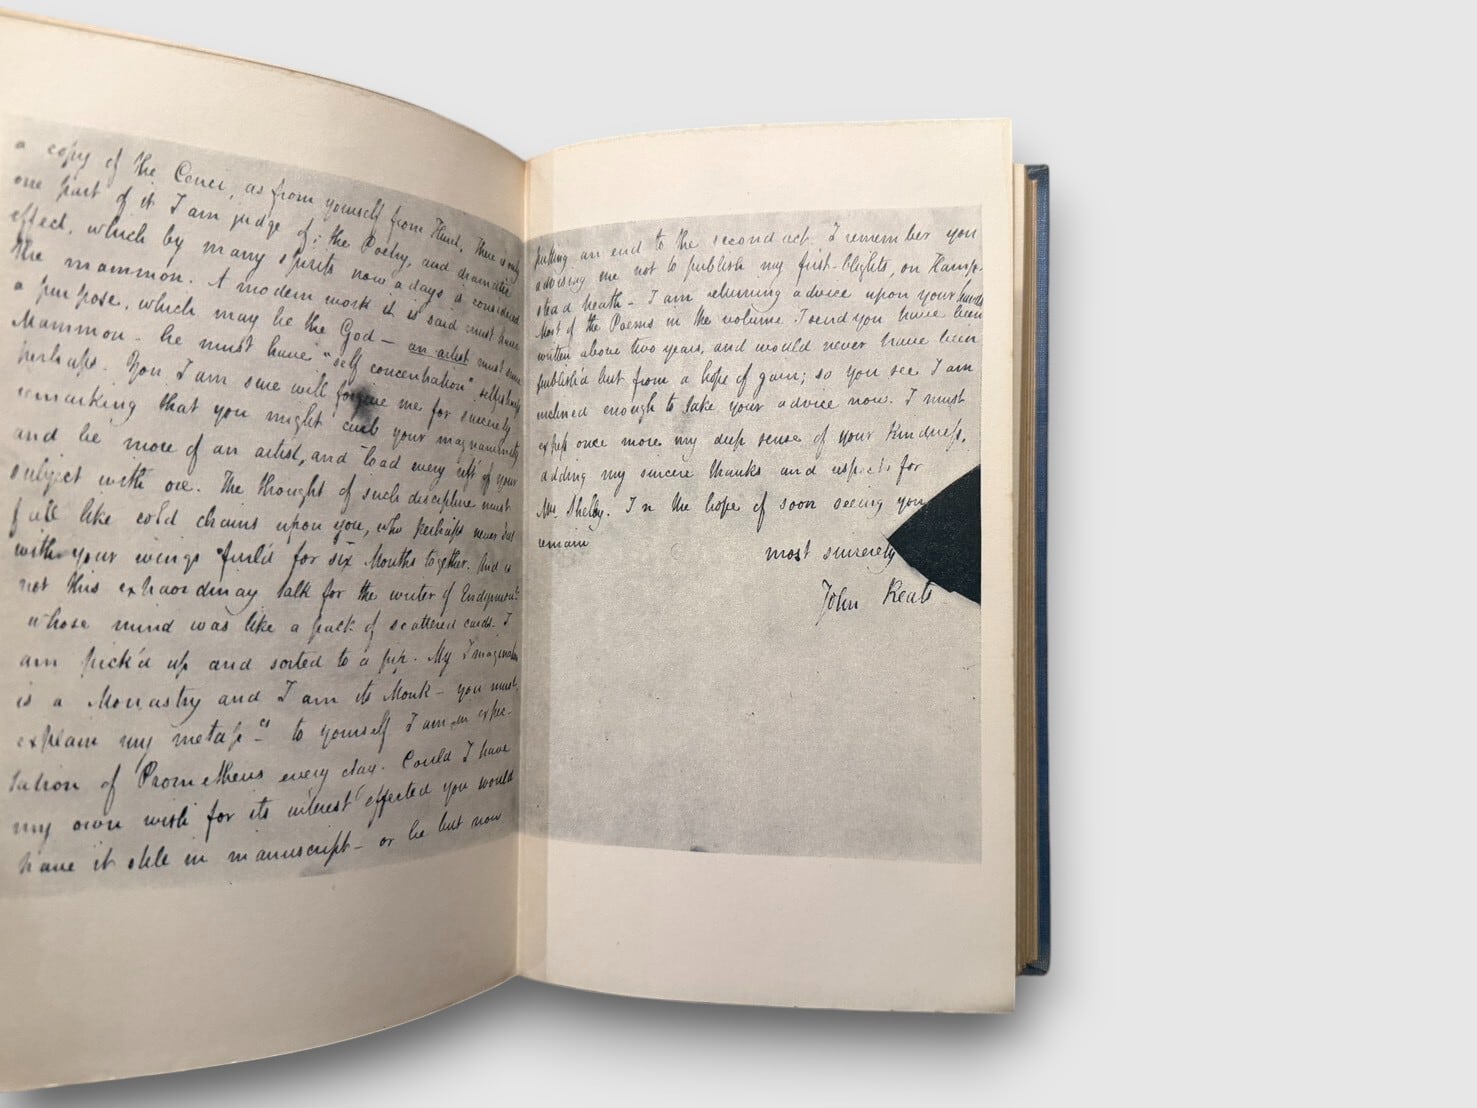 a copy of the Cenci, as from yourself from Hunt. There is only
one part of it I am judge of; the Poetry, and dramatic
effect, which by many spirits now a days is considered
the mammon. A modern work it is said must have
a purpose, which may be the God – an artist must serve
Mammon – he must have "self concentration" selfishness
perhaps. You I am sure will forgive me for sincerely
remarking that you might curb your magnanimity
and be more of an artist, and 'load every rift' of your
subject with ore. The thought of such discipline must
fall like cold chains upon you, who perhaps never sat
with your wings furl'd for six Months together. And is
not this extraordinay talk for the writer of Endymion?
whose mind was like a pack of scattered cards – I
am pick'd up and sorted to a pip. My Imagination
is a Monastry and I am its Monk – you must
explain my metapcs to yourself. I am in expec-
tation of Prometheus every day. Could I have
my own wish for its interest effected you would
have it still in manuscript – or be but now
putting an end to the second act. I remember you
advising me not to publish my first-blights, on Hamp-
stead heath – I am returning advice upon your hands
Most of the Poems in the volume I send you have been
written above two years, and would never have been
publish'd but from a hope of gain; so you see I am
inclined enough to take your advice now. I must
exp﻿ress once more my deep sense of your kindness,
adding my sincere thanks and respects for
Mrs Shelley. In the hope of soon seeing you
remain
most sincerely
John Keats